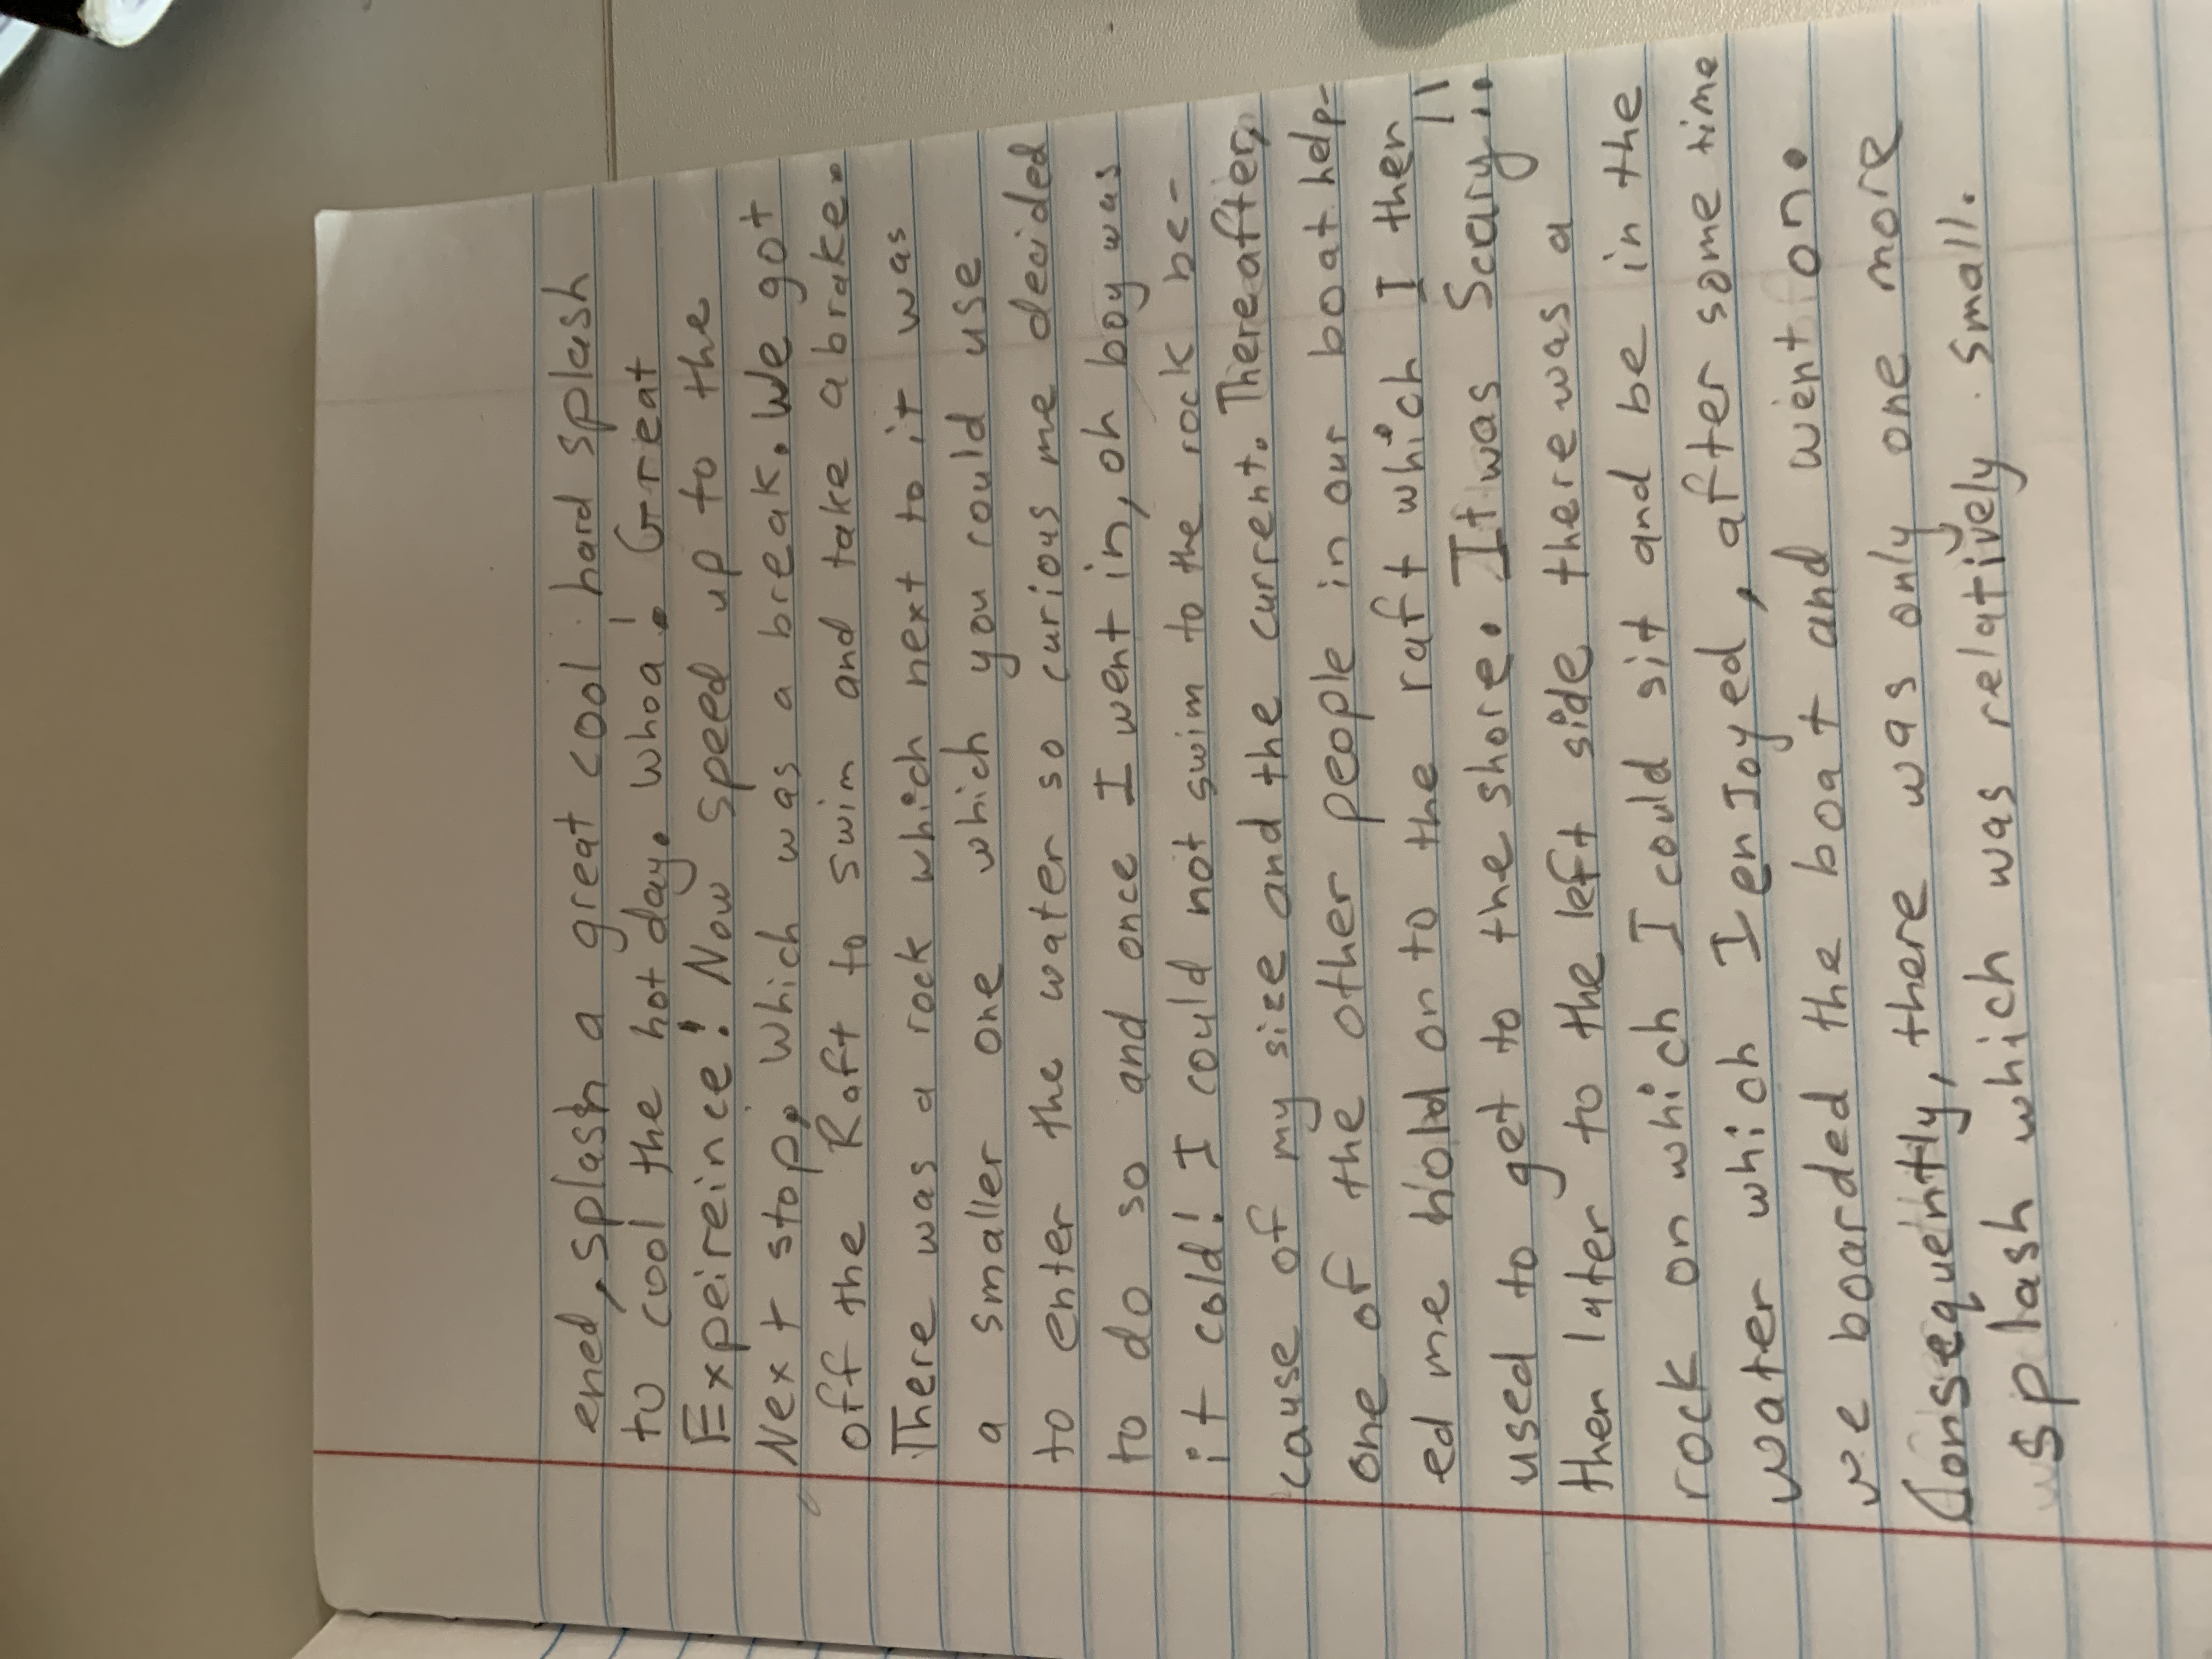 ened, splash a great cool hard splash
to cool the hot day. whoa! Great
Expeireince! Now speed up to the
Next stop, which was a break. We got
off the Raft to swim and take a brake.
There was a rock which next to it was
a smaller one which you could use
to enter the water so curious me decided
to do so and once I went in, oh boy was
it cold! I could not swim to the rock be-
cause of my size and the current. Thereafter,
one of the other people in our boat help-
ed me hold on to the raft which I then
used to get to the shore. It was Scary!!
then later to the left side there was a
rock on which I could sit and be in the
water which I enjoyed, after some time
we boarded the boat and went on.
Consequently, there was only one more
splash which was relatively small.